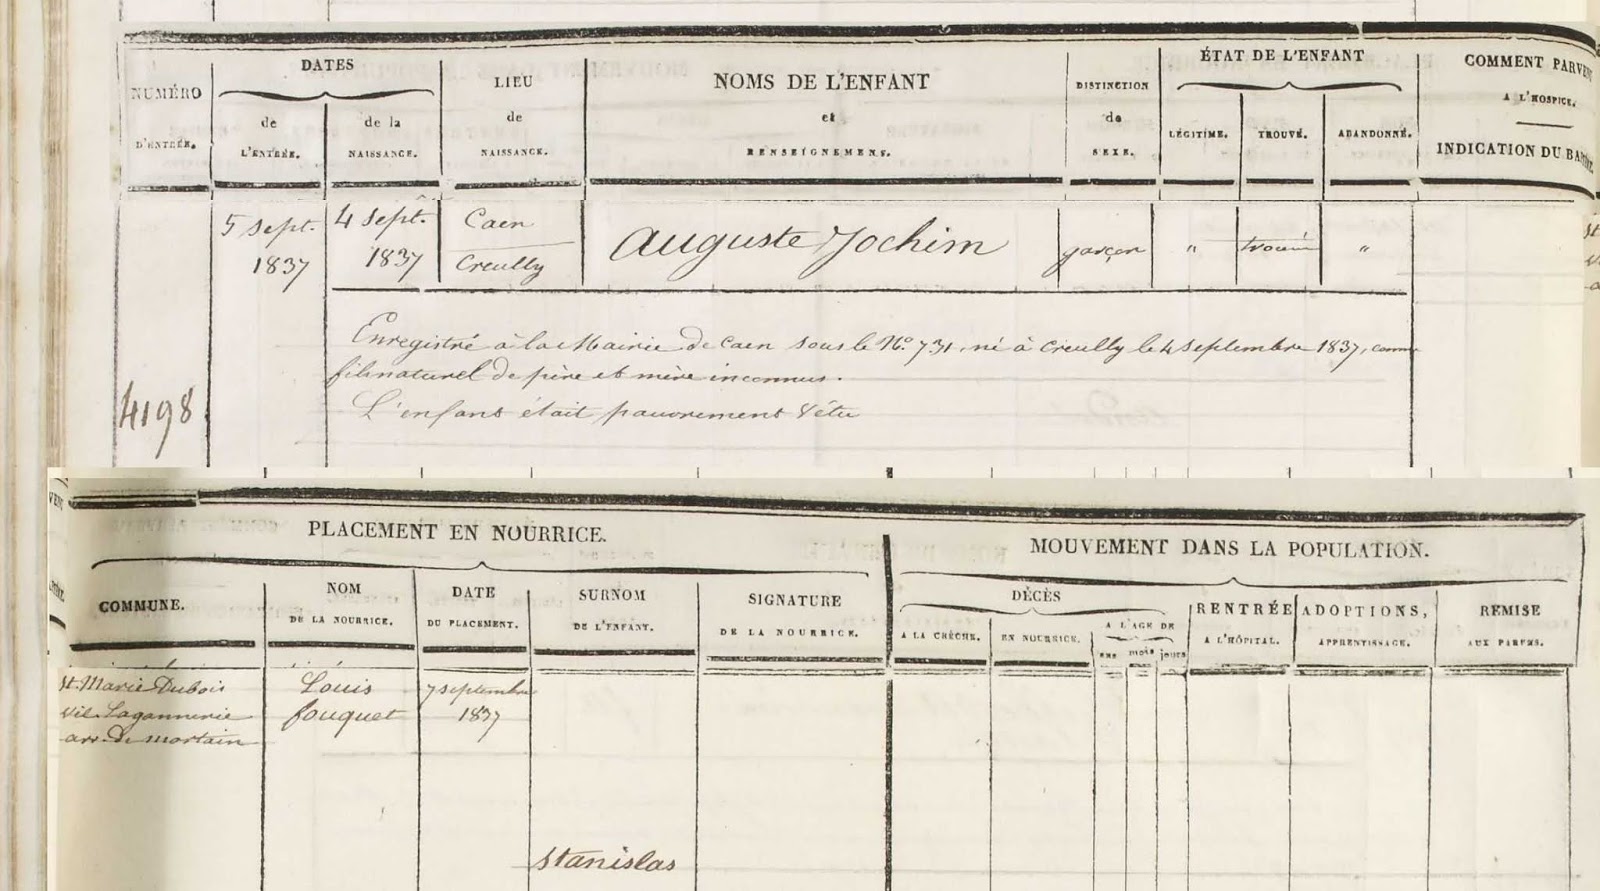 DATES
ÉTAT DE L'ENFANT
NUMÉRO
D'ENTRÉE.
de
L'ENTRÉE.
de la
NAISSANCE.
LIEU
de
NAISSANCE.
NOMS DE L'ENFANT
et
RENSEIGNEMENS.
DISTINCTION
de
SEXE.
LÉGITIME.
TROUVÉ.
ABANDONNÉ.
COMMENT PARVENU
A L'HOSPICE.
INDICATION DU
5 sept.
1837
4 sept.
1837
Caen
Creully
Auguste Jochim
garçon
"
trouvé
"
Enregistré à la Mairie de Caen sous le No. 731, né à Creully le 4 septembre 1837, comme
fils naturel de père et mère inconnus.
L'enfant était pauvrement vêtu
4198
PLACEMENT EN NOURRICE.
MOUVEMENT DANS LA POPULATION.
COMMUNE.
NOM
DE LA NOURRICE.
DATE
DU PLACEMENT.
SURNOM
DE L'ENFANT.
SIGNATURE
DE LA NOURRICE.
DÉCÈS
A LA CRÈCHE.
EN NOURRICE.
A L'AGE DE
ans
mois
jours
RENTRÉE
A L'HÔPITAL.
ADOPTIONS,
APPRENTISSAGE.
REMISE
AUX PARENS.
St. Marie Dubois
vil. Lagannerie
arr. de mortain
Louis
fouquet
7 septembre
1837
Stanislas